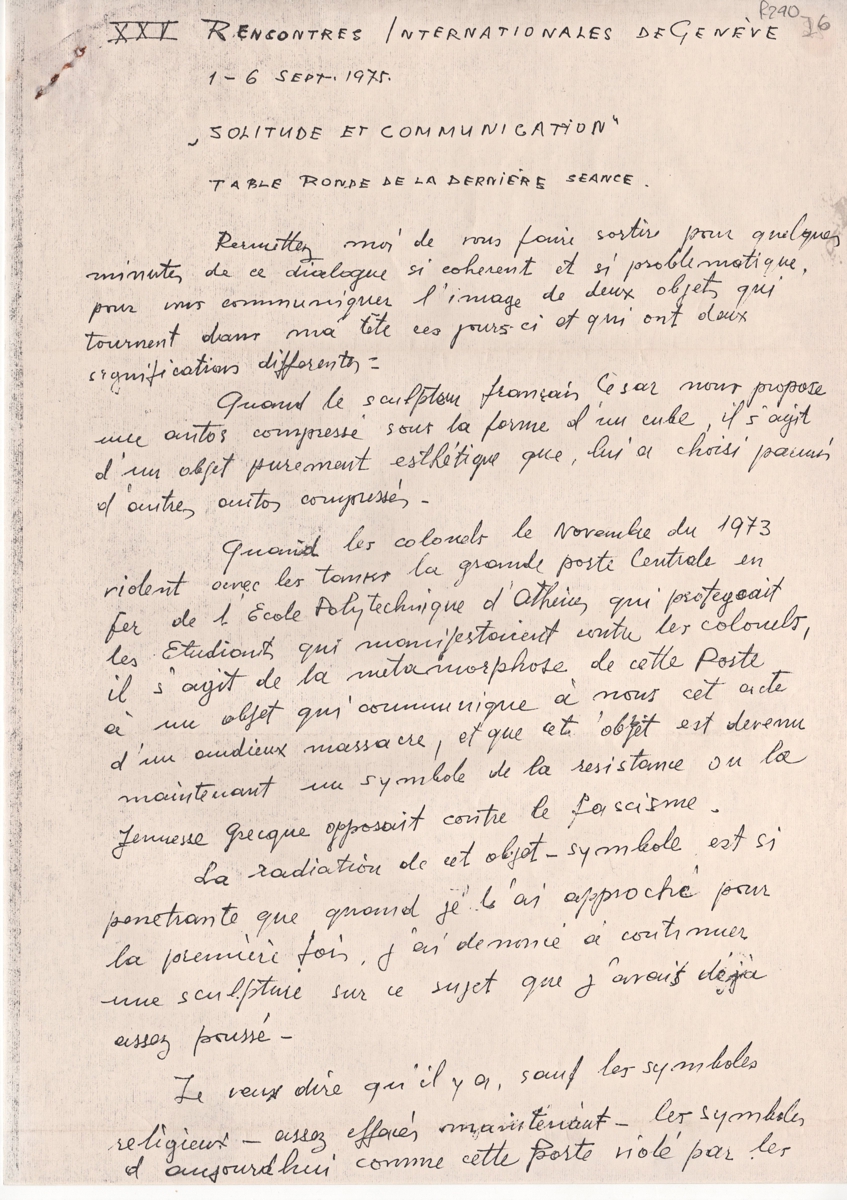 R290
76
XXV RENCONTRES INTERNATIONALES DE GENÈVE
1-6 SEPT. 1975.
„SOLITUDE ET COMMUNICATION"
TABLE RONDE DE LA DERNIÈRE SEANCE.
Permettez moi de vous faire sortire pour quelques
minutes de ce dialogue si coherent et si problematique,
pour vous communiquer l'image de deux objets qui
tournent dans ma tête ces jours-ci et qui ont deux
significations differentes =
Quand le sculpteur français César nous propose
une autos compressé sous la forme d'un cube, il s'agit
d'un objet purement esthétique que, lui a choisi parmis
d'autres autos compressés -
Quand les colonels le Novembre du 1973
violent avec les tanks la grande porte Centrale en
fer de l'École Polytechnique d'Athènes qui protegeait
les Etudiants qui manifestaient contre les colonels,
il s'agit de la métamorphose de cette Porte
à un objet qui communique à nous cet acte
d'un audieux massacre, et que cet objet est devenu
maintenant un symbole de la resistance ou la
Jeunesse Grecque opposait contre le fascisme.
La radiation de cet objet-symbole est si
penetrante que quand je l'ai approché pour
la première fois, j'ai denoncé à continuer
une sculpture sur ce sujet que j'avais déjà
assez poussé -
Je veux dire qu'il y a, sauf les symboles
religieux - assez effacés maintenant - les symboles
d'aujourd'hui comme cette Porte violé par les